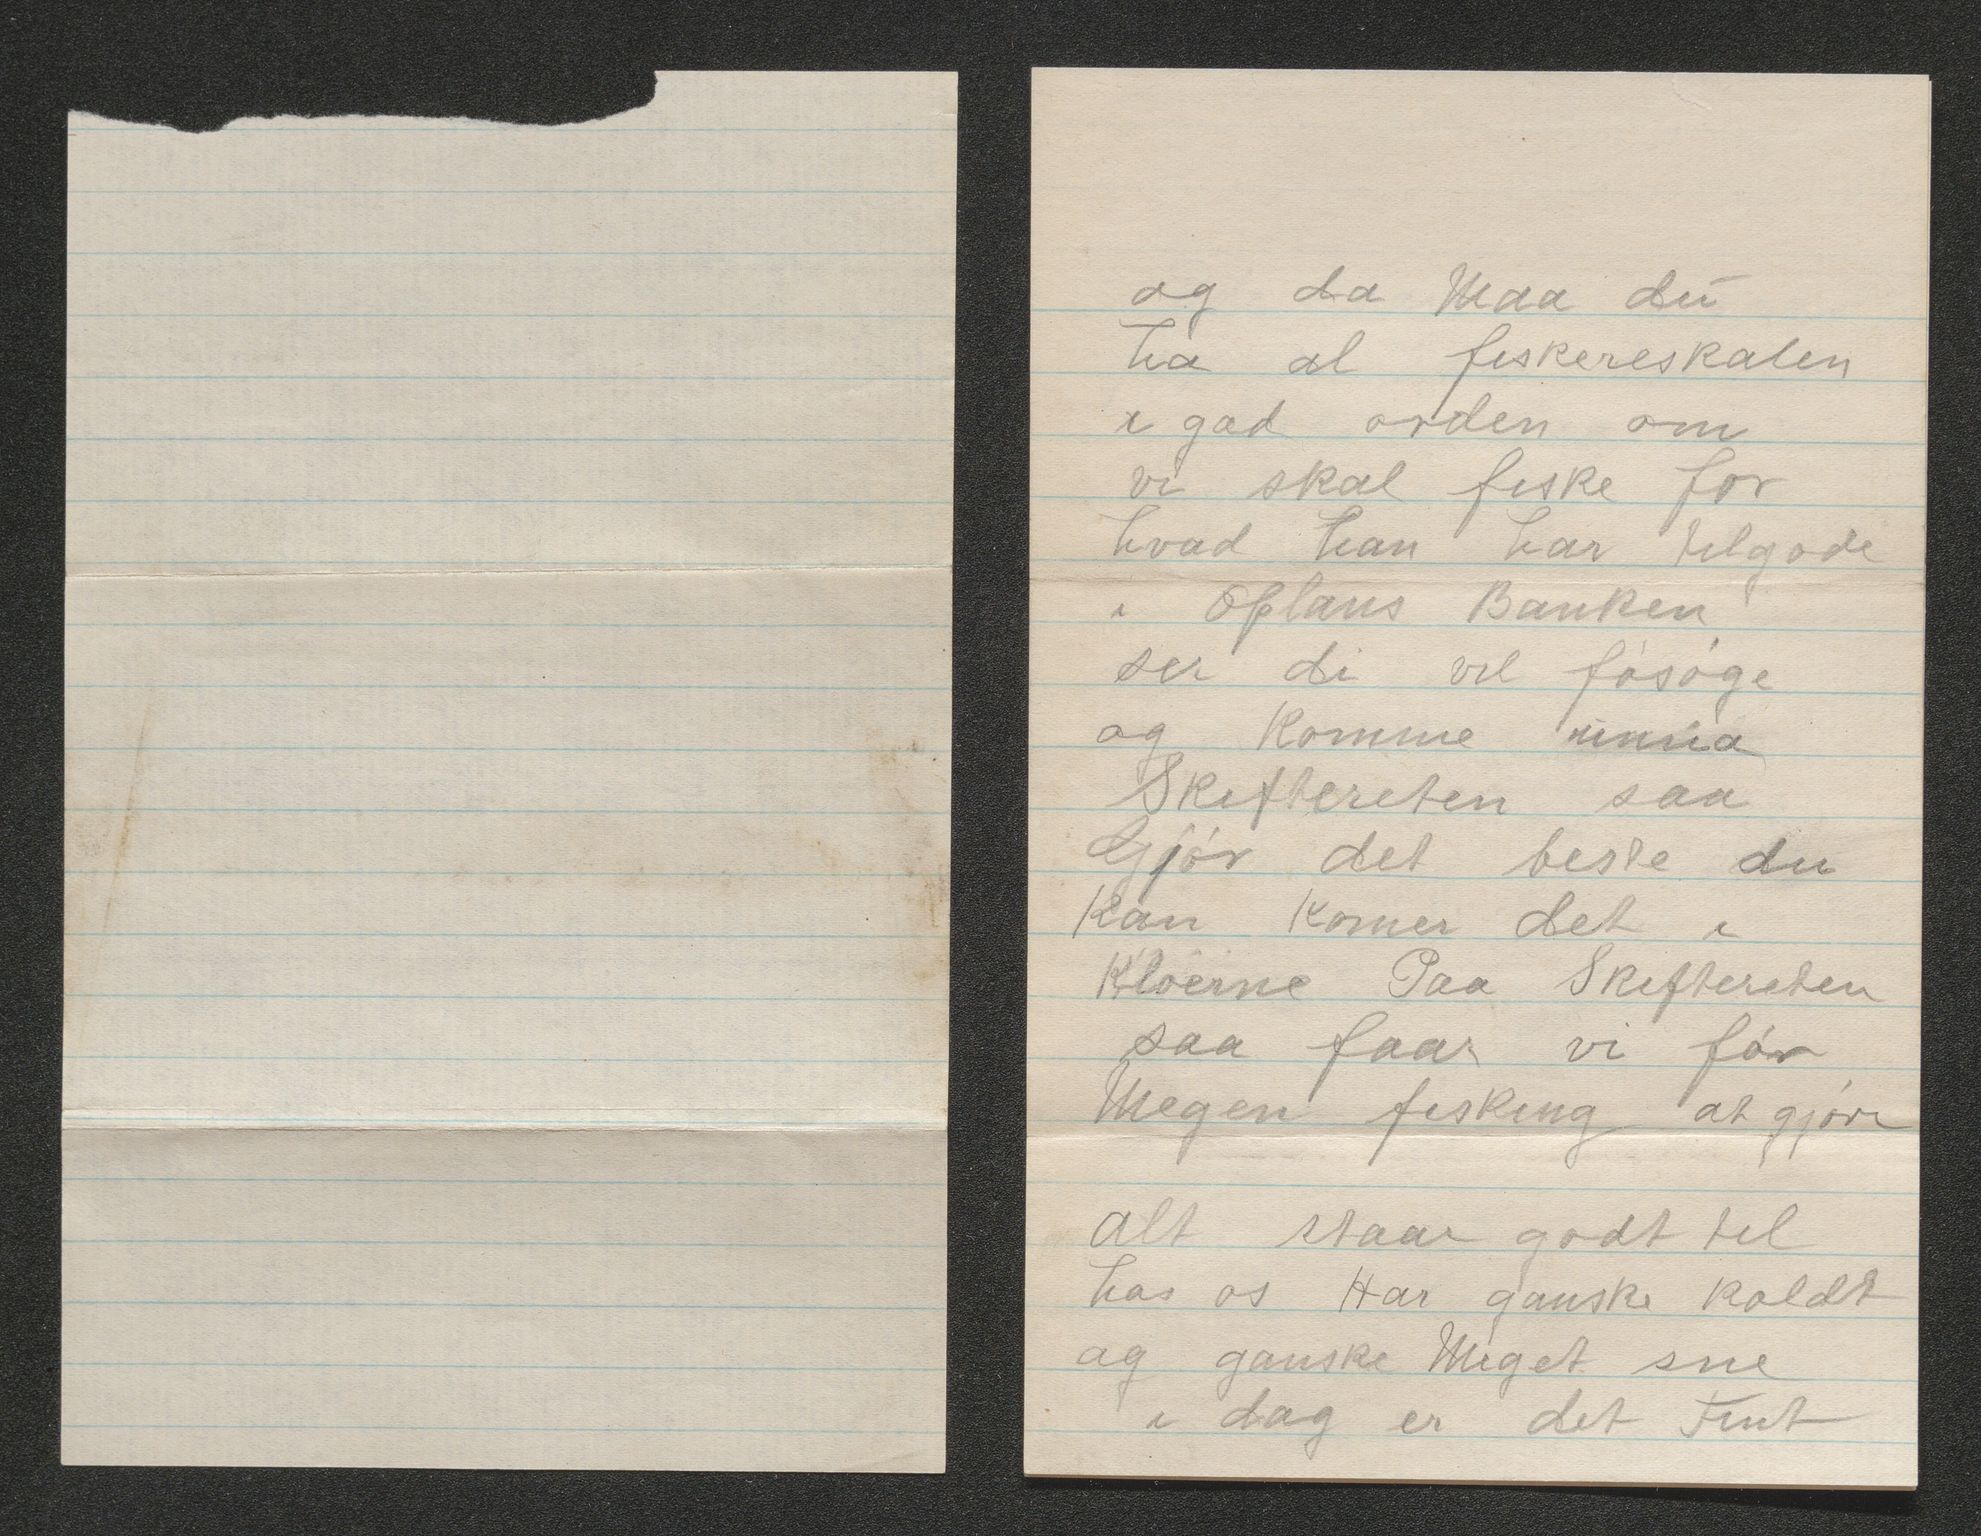 og da Maa du
ha al fiskereskalen
i god orden om
vi skal fiske for
hvad han har tilgode
i Oplans Banken
ser di vil fósóge
og komme unna
Skiftereten saa
Gjór det beste du
Kan Komer det i
Klóerne Paa Skiftereten
saa faar vi fór
Megen fisking at gjóre
alt staar godt til
hos os Har ganske koldt
og ganske Meget sne
i dag er det Fint